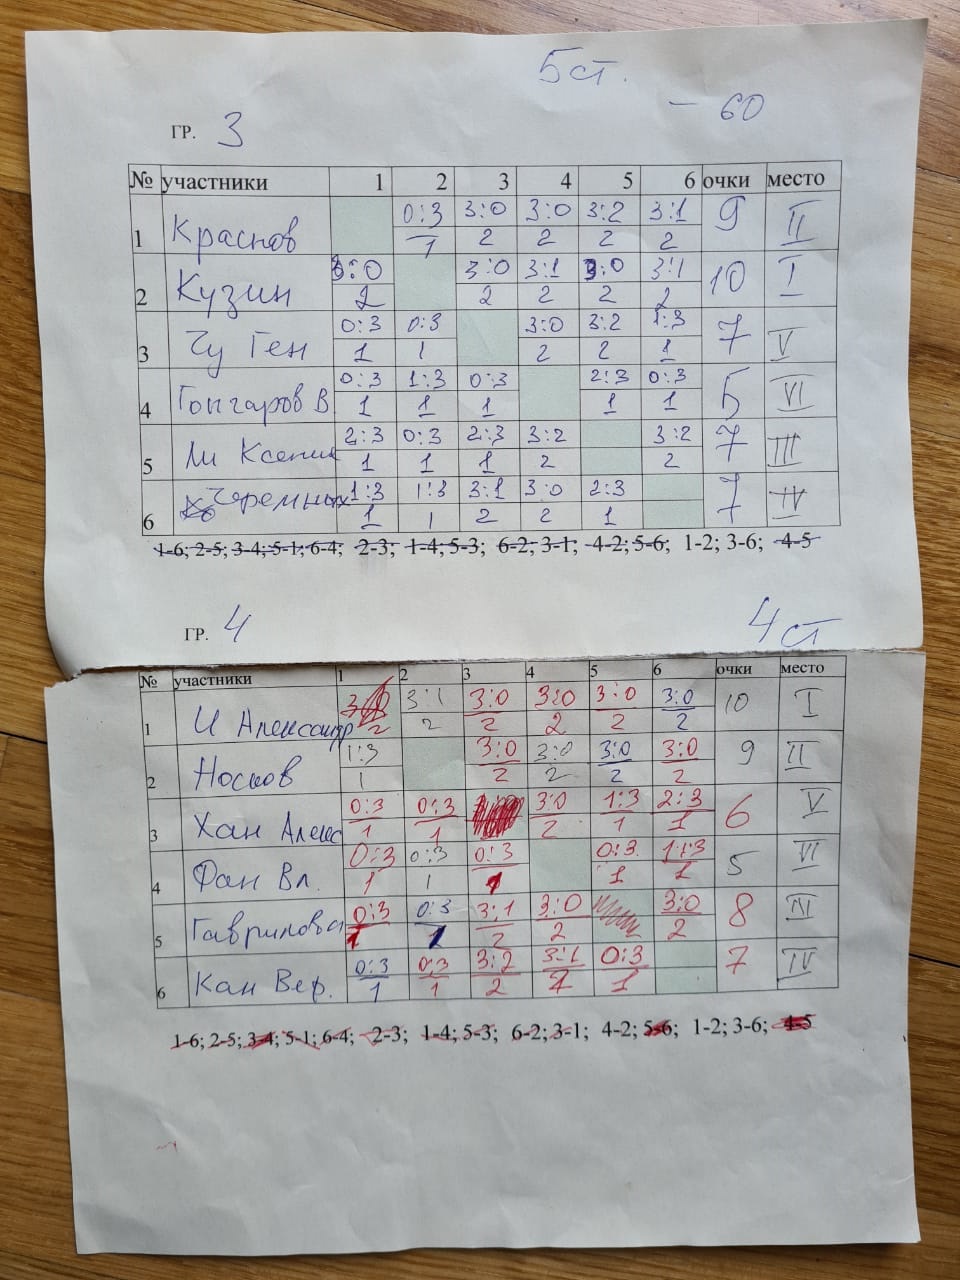 5 ст.
— 60
ГР. 3
№ участники 1 2 3 4 5 6 очки место
1 Краснов 0:3 3:0 3:0 3:2 3:1 9 II
1 2 2 2 2
2 Кузин 3:0 3:0 3:1 3:0 3:1 10 I
2 2 2 2 2
3 Чу Ген 0:3 0:3 3:0 3:2 1:3 7 V
1 1 2 2 1
4 Гончаров В 0:3 1:3 0:3 2:3 0:3 5 VI
1 1 1 1 1
5 Ли Ксения 2:3 0:3 2:3 3:2 3:2 7 III
1 1 1 2 2
6 Черемных 1:3 1:3 3:1 3:0 2:3 7 IV
1 1 2 2 1
1-6; 2-5; 3-4; 5-1; 6-4; 2-3; 1-4; 5-3; 6-2; 3-1; 4-2; 5-6; 1-2; 3-6; 4-5
ГР. 4
4 ст
№ участники 1 2 3 4 5 6 очки место
1 И Александр 3:1 3:0 3:0 3:0 3:0 10 I
2 2 2 2 2
2 Носков 1:3 3:0 3:0 3:0 3:0 9 II
1 2 2 2 2
3 Хан Алекс 0:3 0:3 3:0 1:3 2:3 6 V
1 1 2 1 1
4 Фан Вл. 0:3 0:3 0:3 0:3 1:3 5 VI
1 1 1 1 1
5 Гаврилова 0:3 0:3 3:1 3:0 3:0 8 III
1 1 2 2 2
6 Кан Вер. 0:3 0:3 3:2 3:1 0:3 7 IV
1 1 2 2 1
1-6; 2-5; 3-4; 5-1; 6-4; 2-3; 1-4; 5-3; 6-2; 3-1; 4-2; 5-6; 1-2; 3-6; 4-5